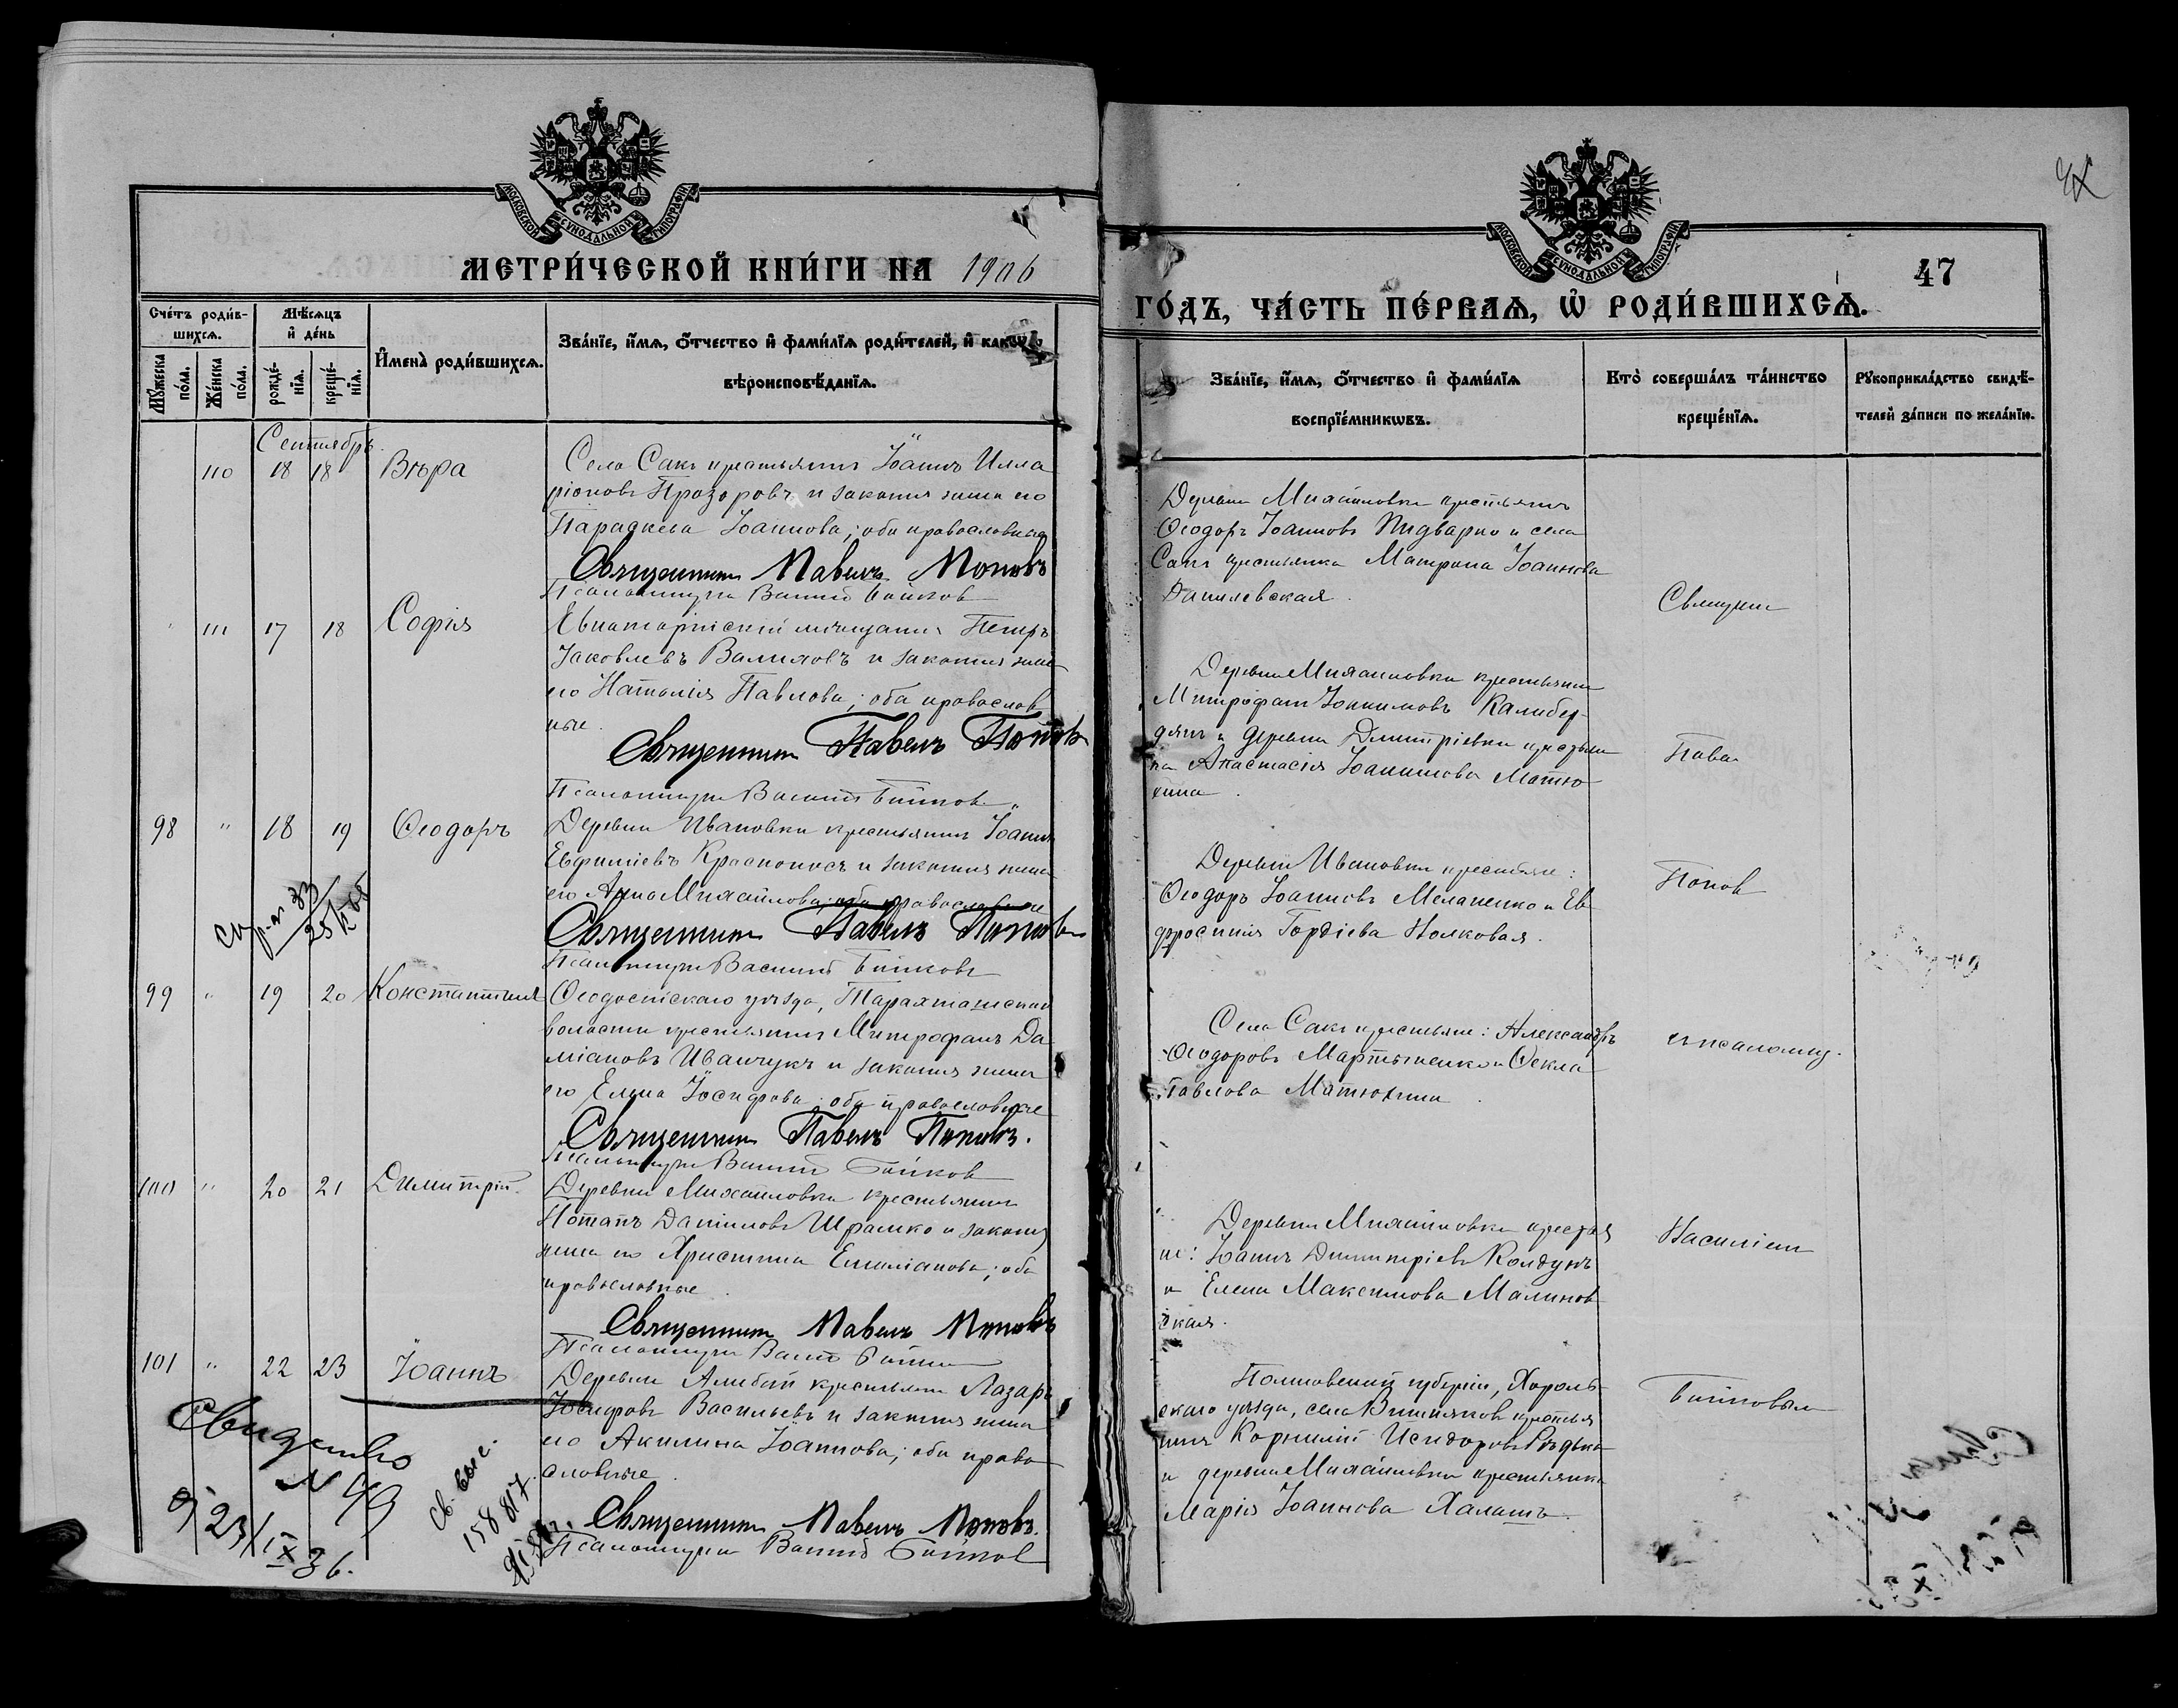 МОСКОВСКОЙ СѴНОДАЛЬНОЙ ТИПОГРАФІИ
МЕТРИ́ЧЕСКОЙ КНИ́ГИ НА 1906
Сче́тъ роди́в-
шихсѧ.
Мѣ́сѧцъ
и҆ де́нь
И҆мена̀ роди́вшихсѧ.
Зва́нїе, и҆́мѧ, ѻ҆́тчество и҆ фами́лїѧ роди́телей, и҆
вѣроисповѣ́данїѧ.
Мꙋ́жеска
по́ла.
Же́нска
по́ла.
рожде́-
нїѧ.
креще́-
нїѧ.
Сентябрь.
110 18 18 Вѣра
Села Сакъ крестьянинъ Іоаннъ Илла
ріоновъ Прозоровъ и законная жена его
Параскева Іоаннова; оба православные
Священникъ Павелъ Поповъ
Псаломщикъ Василій Бойков
111 17 18 Софія
Евпаторійскій мѣщанинъ Петръ
Іаковлевъ Валиховъ и законная жена
его Наталія Павлова; оба православ
ные.
Священникъ Павелъ Поповъ
Псаломщикъ Василій Бойковъ
98 " 18 19 Ѳеодоръ
Деревни Ивановки крестьянинъ Іоаннъ
Евфиміевъ Красноносъ и законная жена
его Анна Михайлова; оба православные
Священникъ Павелъ Поповъ
Псаломщикъ Василій Бойковъ
99 " 19 20 Константинъ
Ѳеодосійскаго уѣзда, Таракташской
волости крестьянинъ Митрофанъ Да
міановъ Иванчукъ и законная жена
его Елена Іосифова; оба православные
Священникъ Павелъ Поповъ.
Псаломщикъ Василій Бойков
100 " 20 21 Димитрій.
Деревни Михайловки крестьянинъ
Потапъ Даніиловъ Шрамко и законн
жена его Христина Емиліанова; оба
православные.
Священникъ Павелъ Поповъ
Псаломщикъ
101 " 22 23 Іоаннъ
Деревни Алибай крестьянинъ Лазарь
Іосифовъ Васильевъ и законная жена
его Акилина Іоаннова; оба право
славные.
Священникъ Павелъ Поповъ.
Псаломщикъ Василій Бойков
N 49
23/IX 36.
158817
МОСКОВСКОЙ СѴНОДАЛЬНОЙ ТИПОГРАФІИ
47
ГО́ДЪ, ЧА́СТЬ ПЕ́РВАѦ, Ѡ҆ РОДИ́ВШИХСѦ.
Зва́нїе, и҆́мѧ, ѻ҆́тчество и҆ фами́лїѧ
воспрїе́мникѡвъ.
Кто̀ соверша́лъ та́инство
креще́нїѧ.
Рꙋкоприкла́дство свидѣ́-
телей за́писи по жела́нїю.
Деревни Михайловки крестьянинъ
Ѳеодоръ Іоанновъ Пидварко и села
Сакъ крестьянка Матрона Іоаннова
Данилевская.
Священ
Деревни Михайловки крестьянинъ
Митрофанъ Іоакимовъ Калибер-
динъ и деревни Димитріевки крестьян
ка Анастасія Іоаннова Матю
хина.
Павел
Деревни Ивановки крестьяне:
Ѳеодоръ Іоанновъ Меланенко и Ев
фросинія Гордіева Волковая.
Попов
Села Сакъ крестьяне: Александръ
Ѳеодоровъ Мартыненко и Ѳекла
Павлова Матюхина.
съ псаломщ.
Деревни Михайловки крестья
не: Іоаннъ Димитріевъ Колдунъ
и Елена Максимова Малинов
ская.
Василіем
Полтавской губерніи, Хороль-
скаго уѣзда, села Вишняковъ крестья
нинъ Корнилій Исидоровъ Рѣдька
и деревни Михайловки крестьянка
Марія Іоаннова Халашъ.
Бойковым